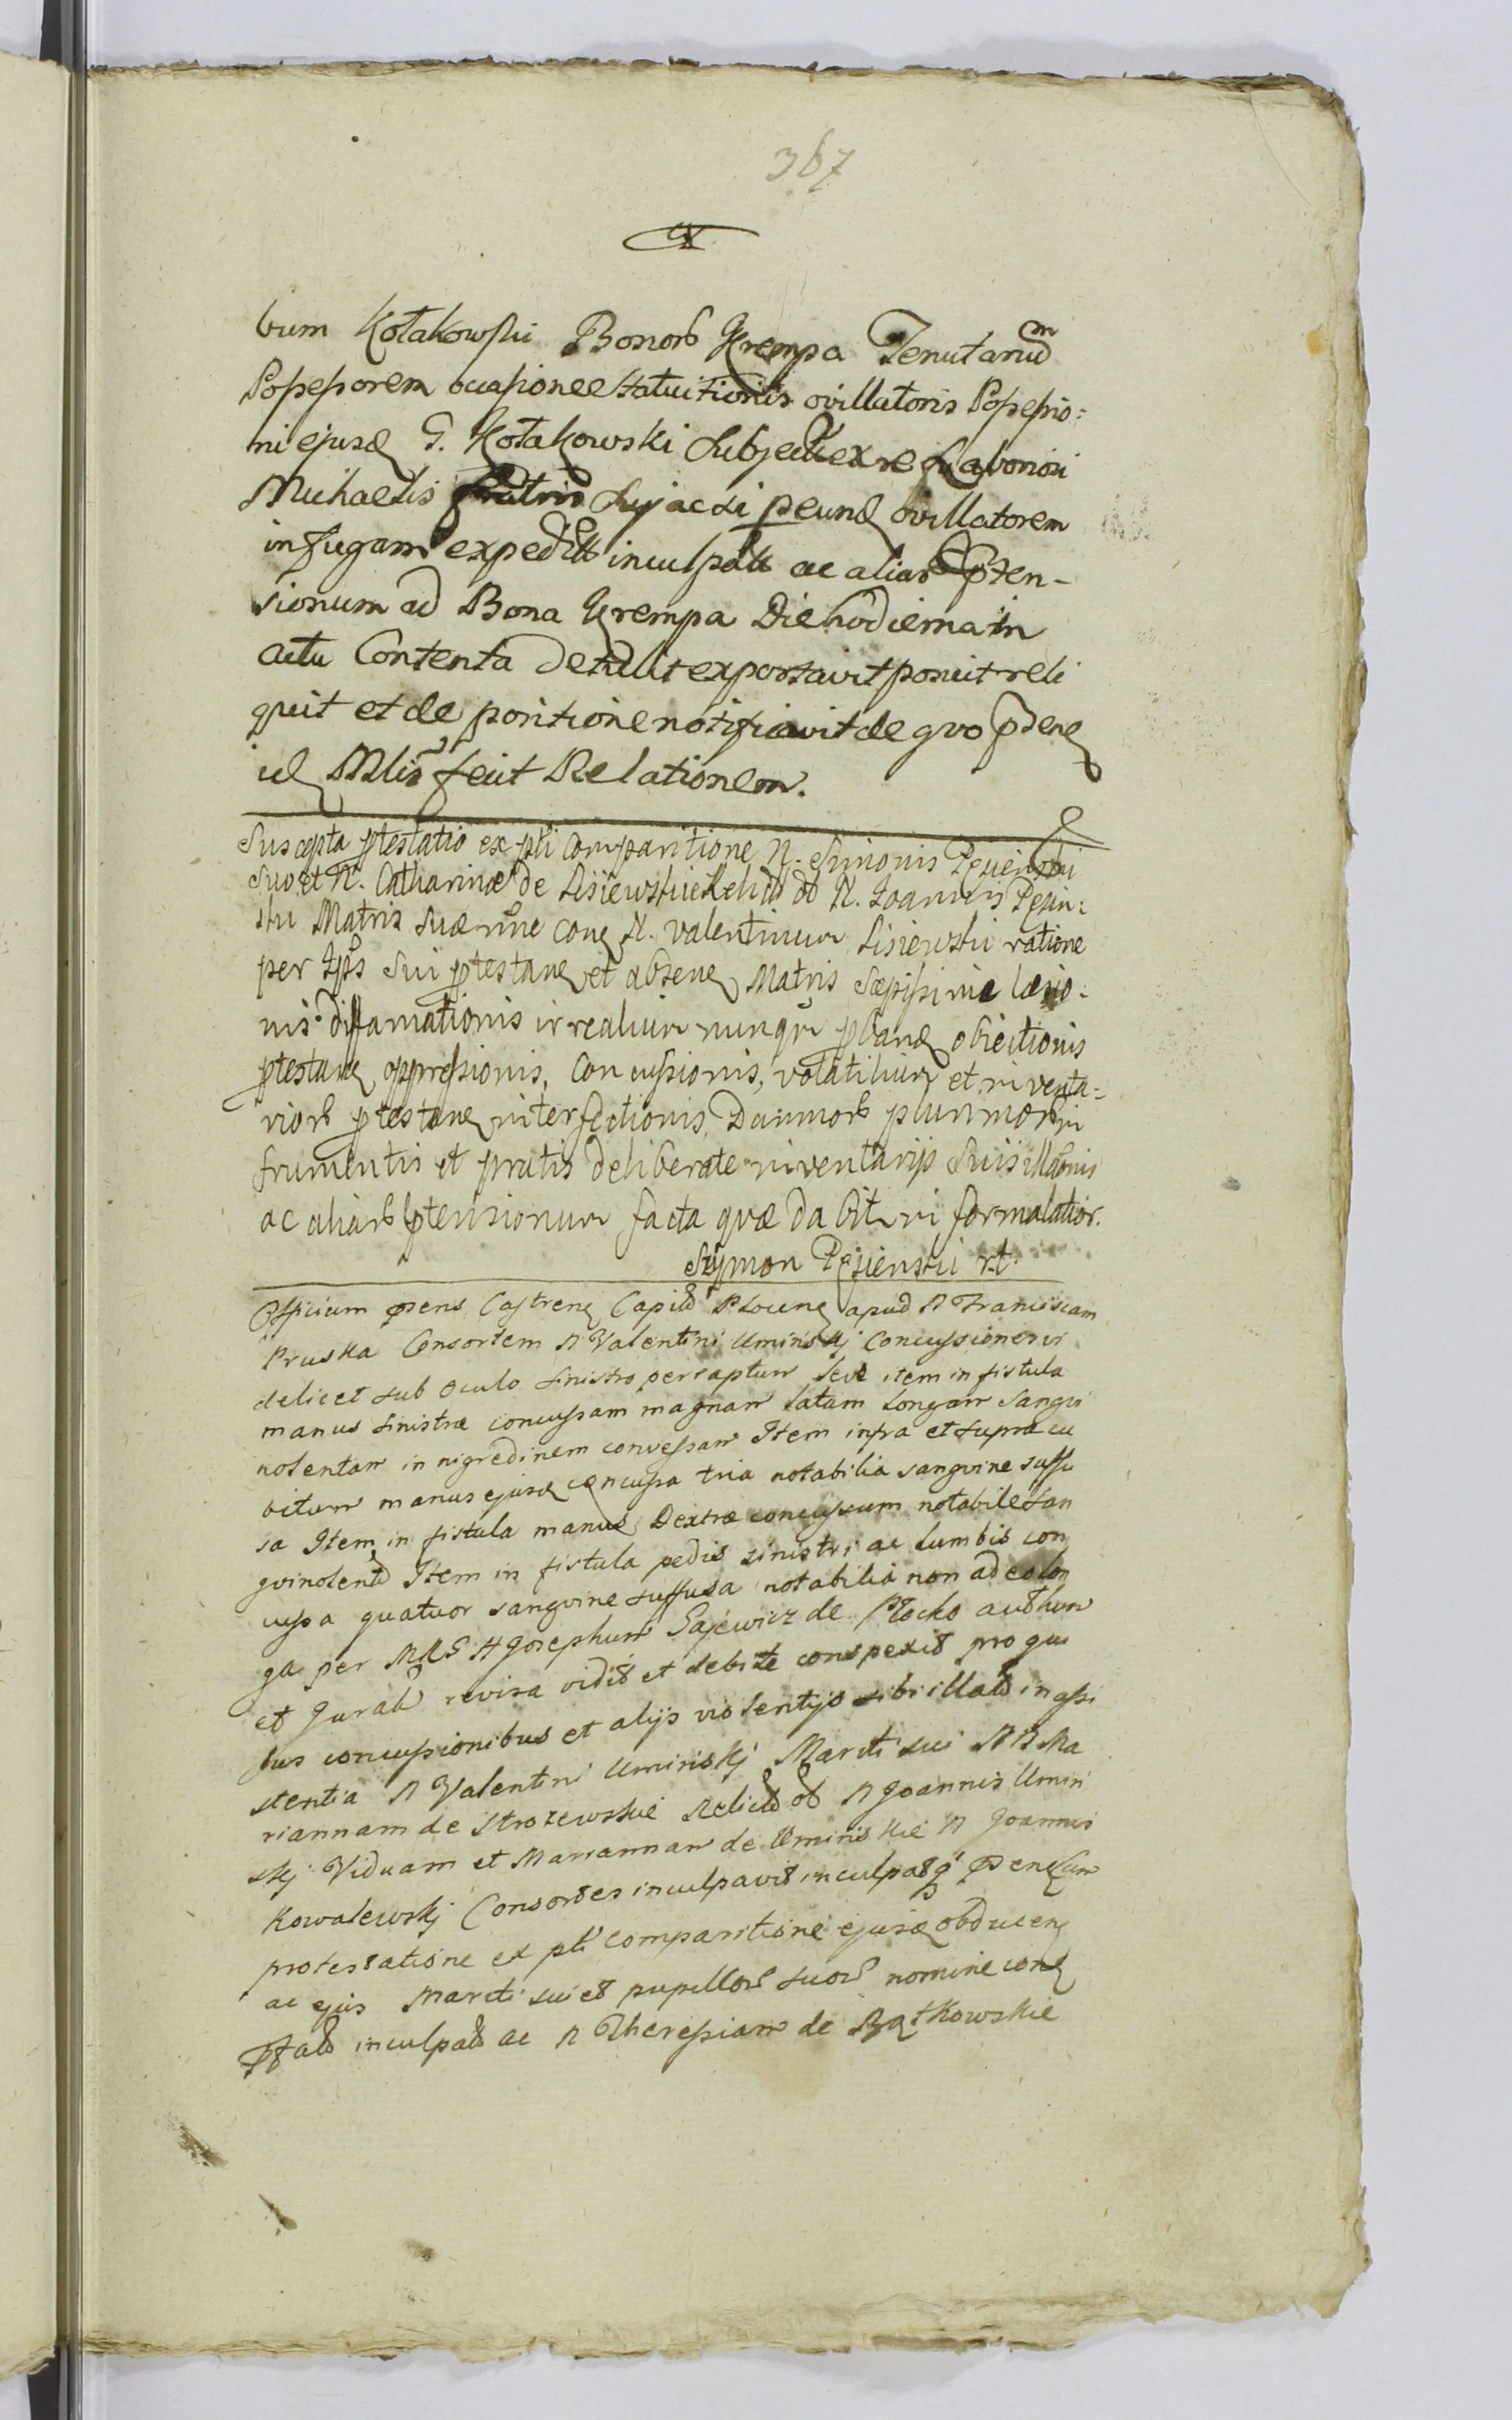 367
bum Kołakowski Bonorb Krempa Tenutariūm
Possessorem occasione statuitionis ovillatoris Possessio:
ni ejusd G. Kołakowski Subjecti ex re Laboriosi
Michaelis fratris
in fugam expedit inculpat ac aliarb Pten-
sionum ad Bona Krempa Die hodierna in
actu Contenta detulit exportavit posuit reli
quit et de positione notificavit de qvo
Mlis fecit Relationem.
Suscepta ptestatio ex pti Comparitione N. Simonis
suo et N. Catharinæ de Lisiewskie Relictæ N. Joannis
Matris suæ nne con N. Valentinum Lisiewski ratione
per Ips Sui ptestan et absen Matris sæpissimæ læsio:
nis diffamationis irrealium nunqm pban obiectionis
ptestan oppressionis, Concussionis, volatilium et inventa:
riorb ptestan interfectionis, Damnorb plurimorb in
frumentis et pratis deliberate inventarijs suis
ac aliarb ptensionum facta quæ dabitur in formalior.
Szymon
Officium pens Castren Capitt Plocen apud N Franciscam
Pruska Consortem N Valentini Uminskj Concussiones vi
delicet sub oculo sinistro percaptum item in fistula
manus sinistræ concussam magnam latam longam sangvi
nolentam in nigredinem conversam Item infra et supra cu
bitum manus ejusd concussa tria notabilia sangvine suffu
sa Item in fistula manus Dextræ concussum notabile san
gvinolent Item in fistula pedis sinistri ac lumbis con
cussa quatuor sangvine suffusa notabilia non adeo lon
ga per Josephum Gajewicz de Płocko
et Jurat revisa vidit et debite conspexit pro qui
bus concussionibus et alijs violentijs sibi illat in assi
stentia N Valentini Uminskj Mariti sui NN Ma
riannam de Relict N Joannis Umin
skj Viduam et Mariannam de Uminskie N Joannis
Kowalewskj Consortes inculpavit
protestatione ex pti comparitione ejusd obducen
ac ejus Mariti sui et pupillorb suorb nomine con
inculpat ac N Theressiam de Bątkowskie